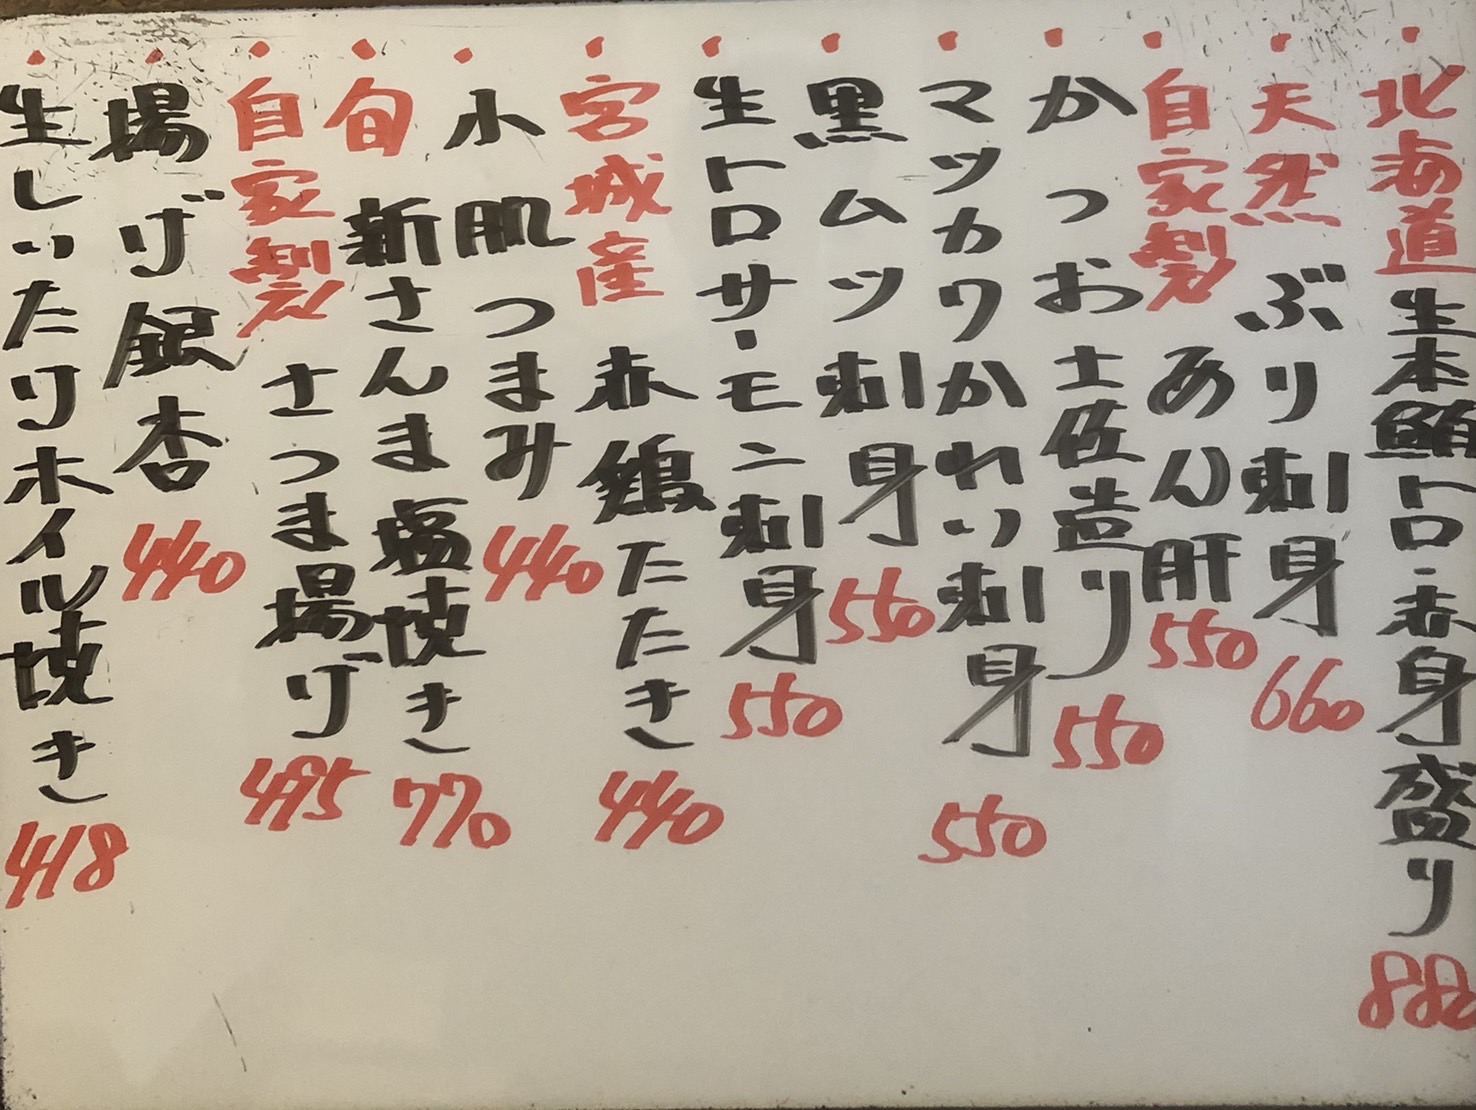 ・北海道 生本鮪トロ・赤身盛り 880
・天然 ぶり刺身 660
・自家製 あん肝 550
・かつお土佐造り 550
・マツカワかれい刺身 550
・黒ムツ刺身 550
・生トロサーモン刺身 550
・宮城産 赤鶏たたき 440
・小肌つまみ 440
・旬 新さんま塩焼き 770
・自家製 さつま揚げ 495
・揚げ銀杏 440
・生しいたけホイル焼き 418